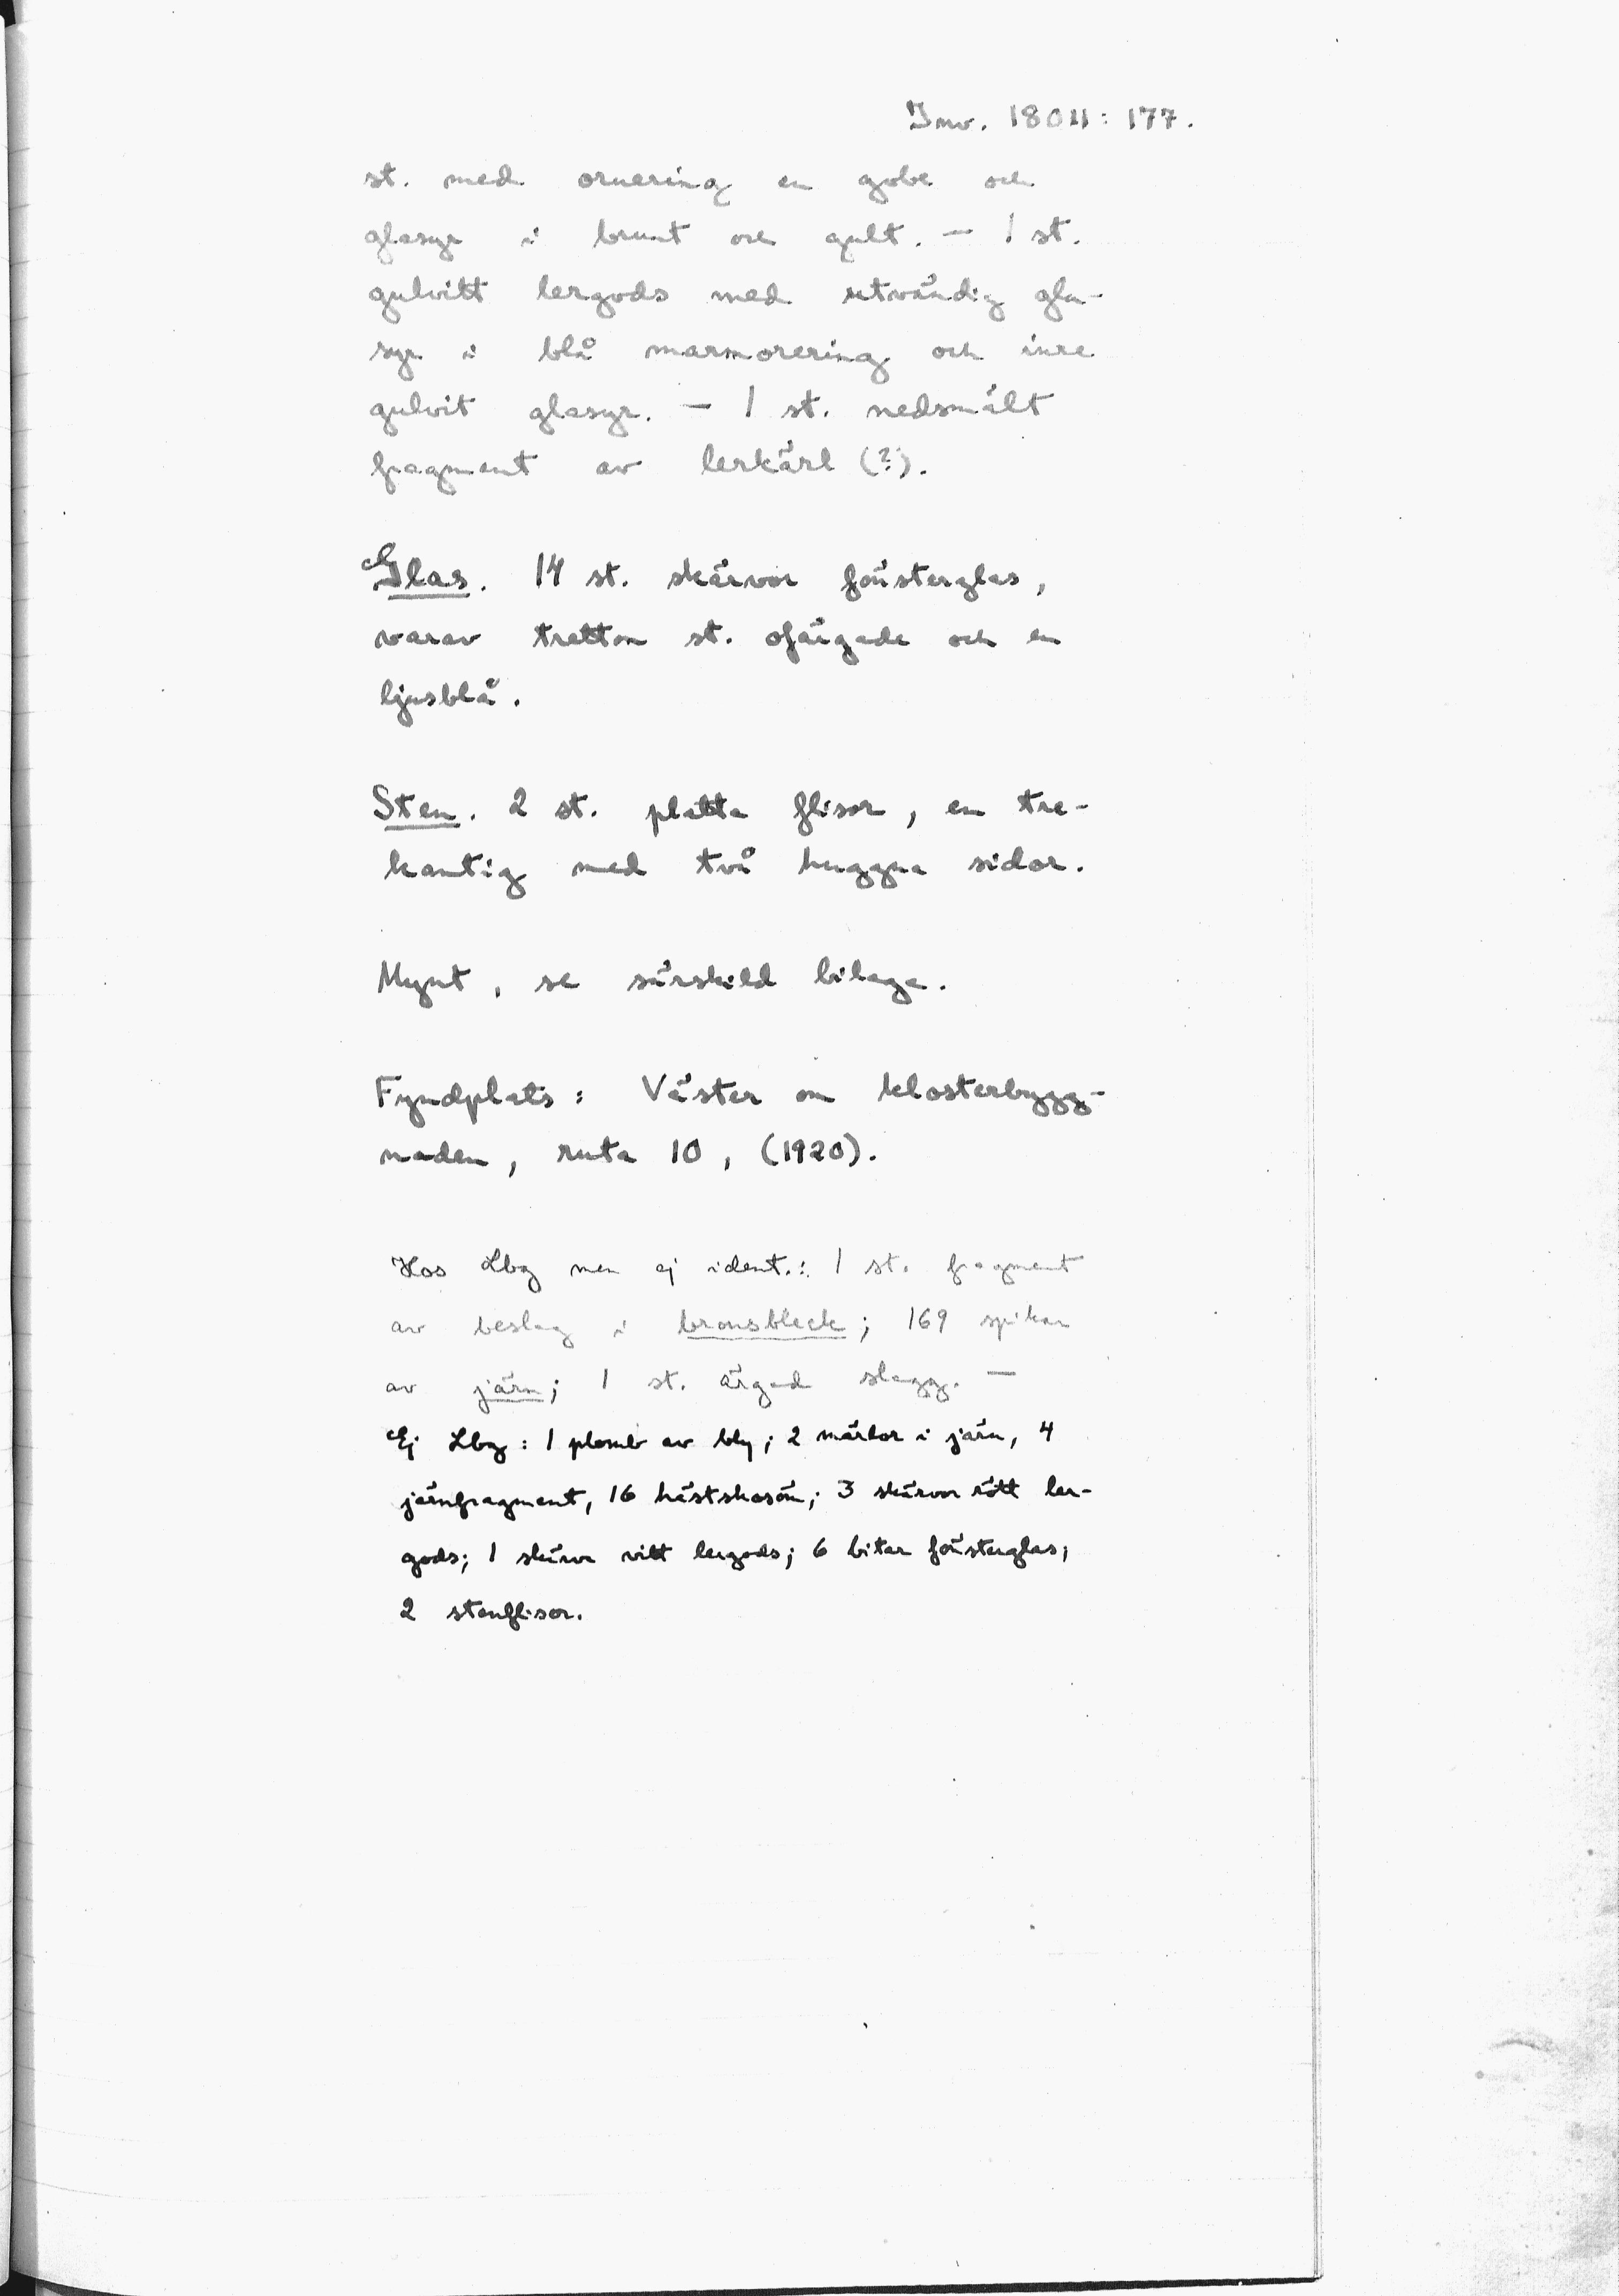 Inv. 18011: 177.
st. med ornering en gobe och
glasyr i brunt och gult. — 1 st.
gulvitt lergods med utvändig gla-
syr i blå marmorering och inre
gulvit glasyr. — 1 st. nedsmält
fragment av lerkärl (?).
Glas. 14 st. skärvor fönsterglas,
varav tretton st. ofärgade och en
ljusblå.
Sten. 2 st. platta flisor, en tre-
kantig med två huggna sidor.
Mynt, se särskild bilaga.
Fyndplats: Väster om klosterbygg-
naden, ruta 10, (1920).
Hos Lbg men ej ident.: 1 st. fragment
av beslag i bronsbleck; 169 spikar
av järn; 1 st. ärgad slagg. —
Ej Lbg: 1 plomb av bly; 2 märlor i järn, 4
järnfragment, 16 hästskosöm; 3 skärvor rött ler-
gods; 1 skärva vitt lergods; 6 bitar fönsterglas;
2 stenflisor.